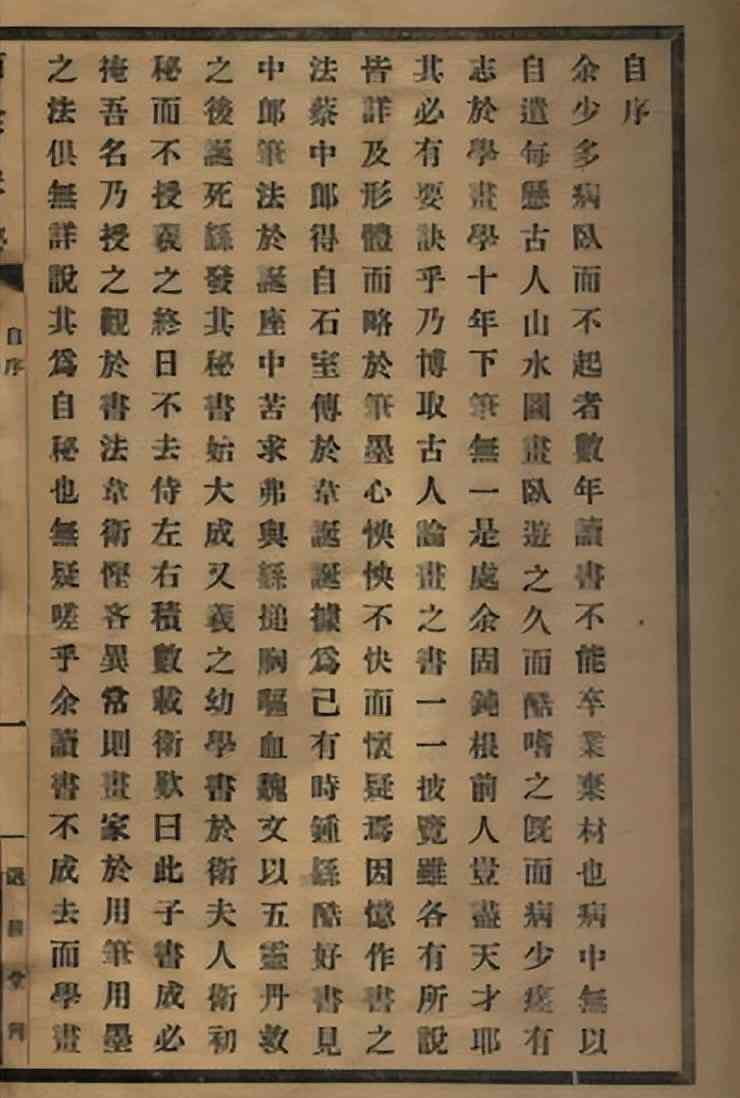 自序
余少多病臥而不起者數年讀書不能卒業棄材也病中無以
自遣每懸古人山水圖畫臥遊之久而酷嗜之旣而病少瘥有
志於學畫學十年下筆無一是處余固鈍根前人豈盡天才耶
其必有要訣乎乃博取古人論畫之書一一披覽雖各有所說
皆詳及形體而略於筆墨心怏怏不快而懷疑焉因憶作書之
法蔡中郎得自石室傳於韋誕誕據爲己有時鍾繇酷好書見
中郎筆法於誕座中苦求弗與繇搥胸嘔血魏文以五靈丹救
之後誕死繇發其秘書始大成又羲之幼學書於衛夫人衛初
秘而不授羲之終日不去侍左右積數載衛歎曰此子書成必
掩吾名乃授之觀於書法韋衛慳吝異常則畫家於用筆用墨
之法俱無詳說其爲自秘也無疑嗟乎余讀書不成去而學畫
自序
一